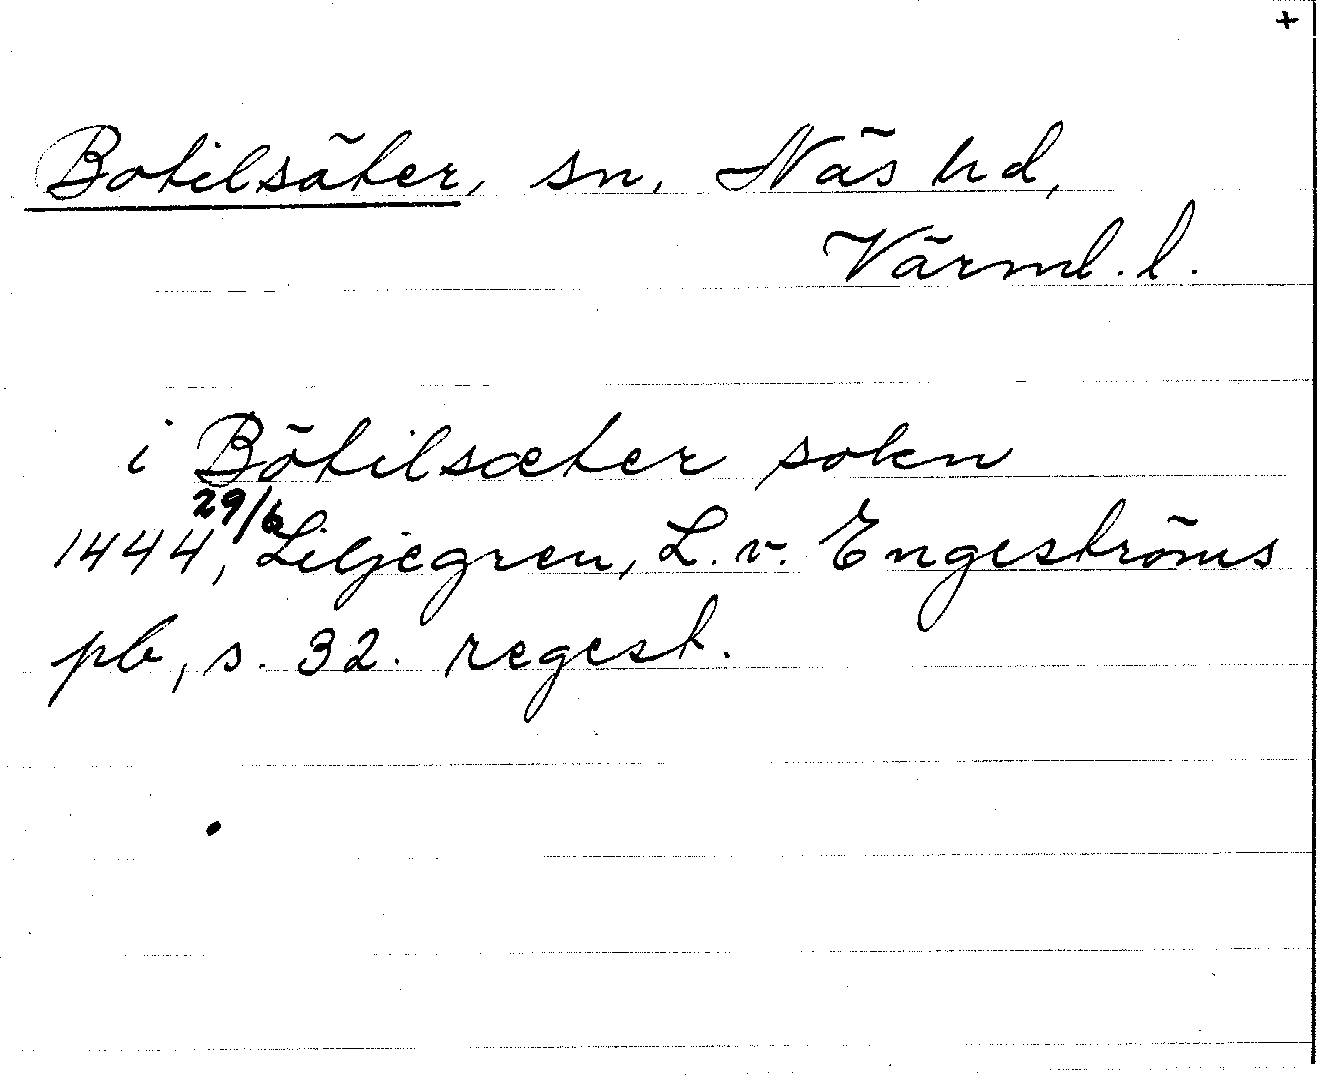 +
Botilsäter, sn, Näs hd,
Värml. l.
i Bötilsæter sokn
29/6
1444, Liljegren, L. v. Engeströms
pb, s. 32. regest.